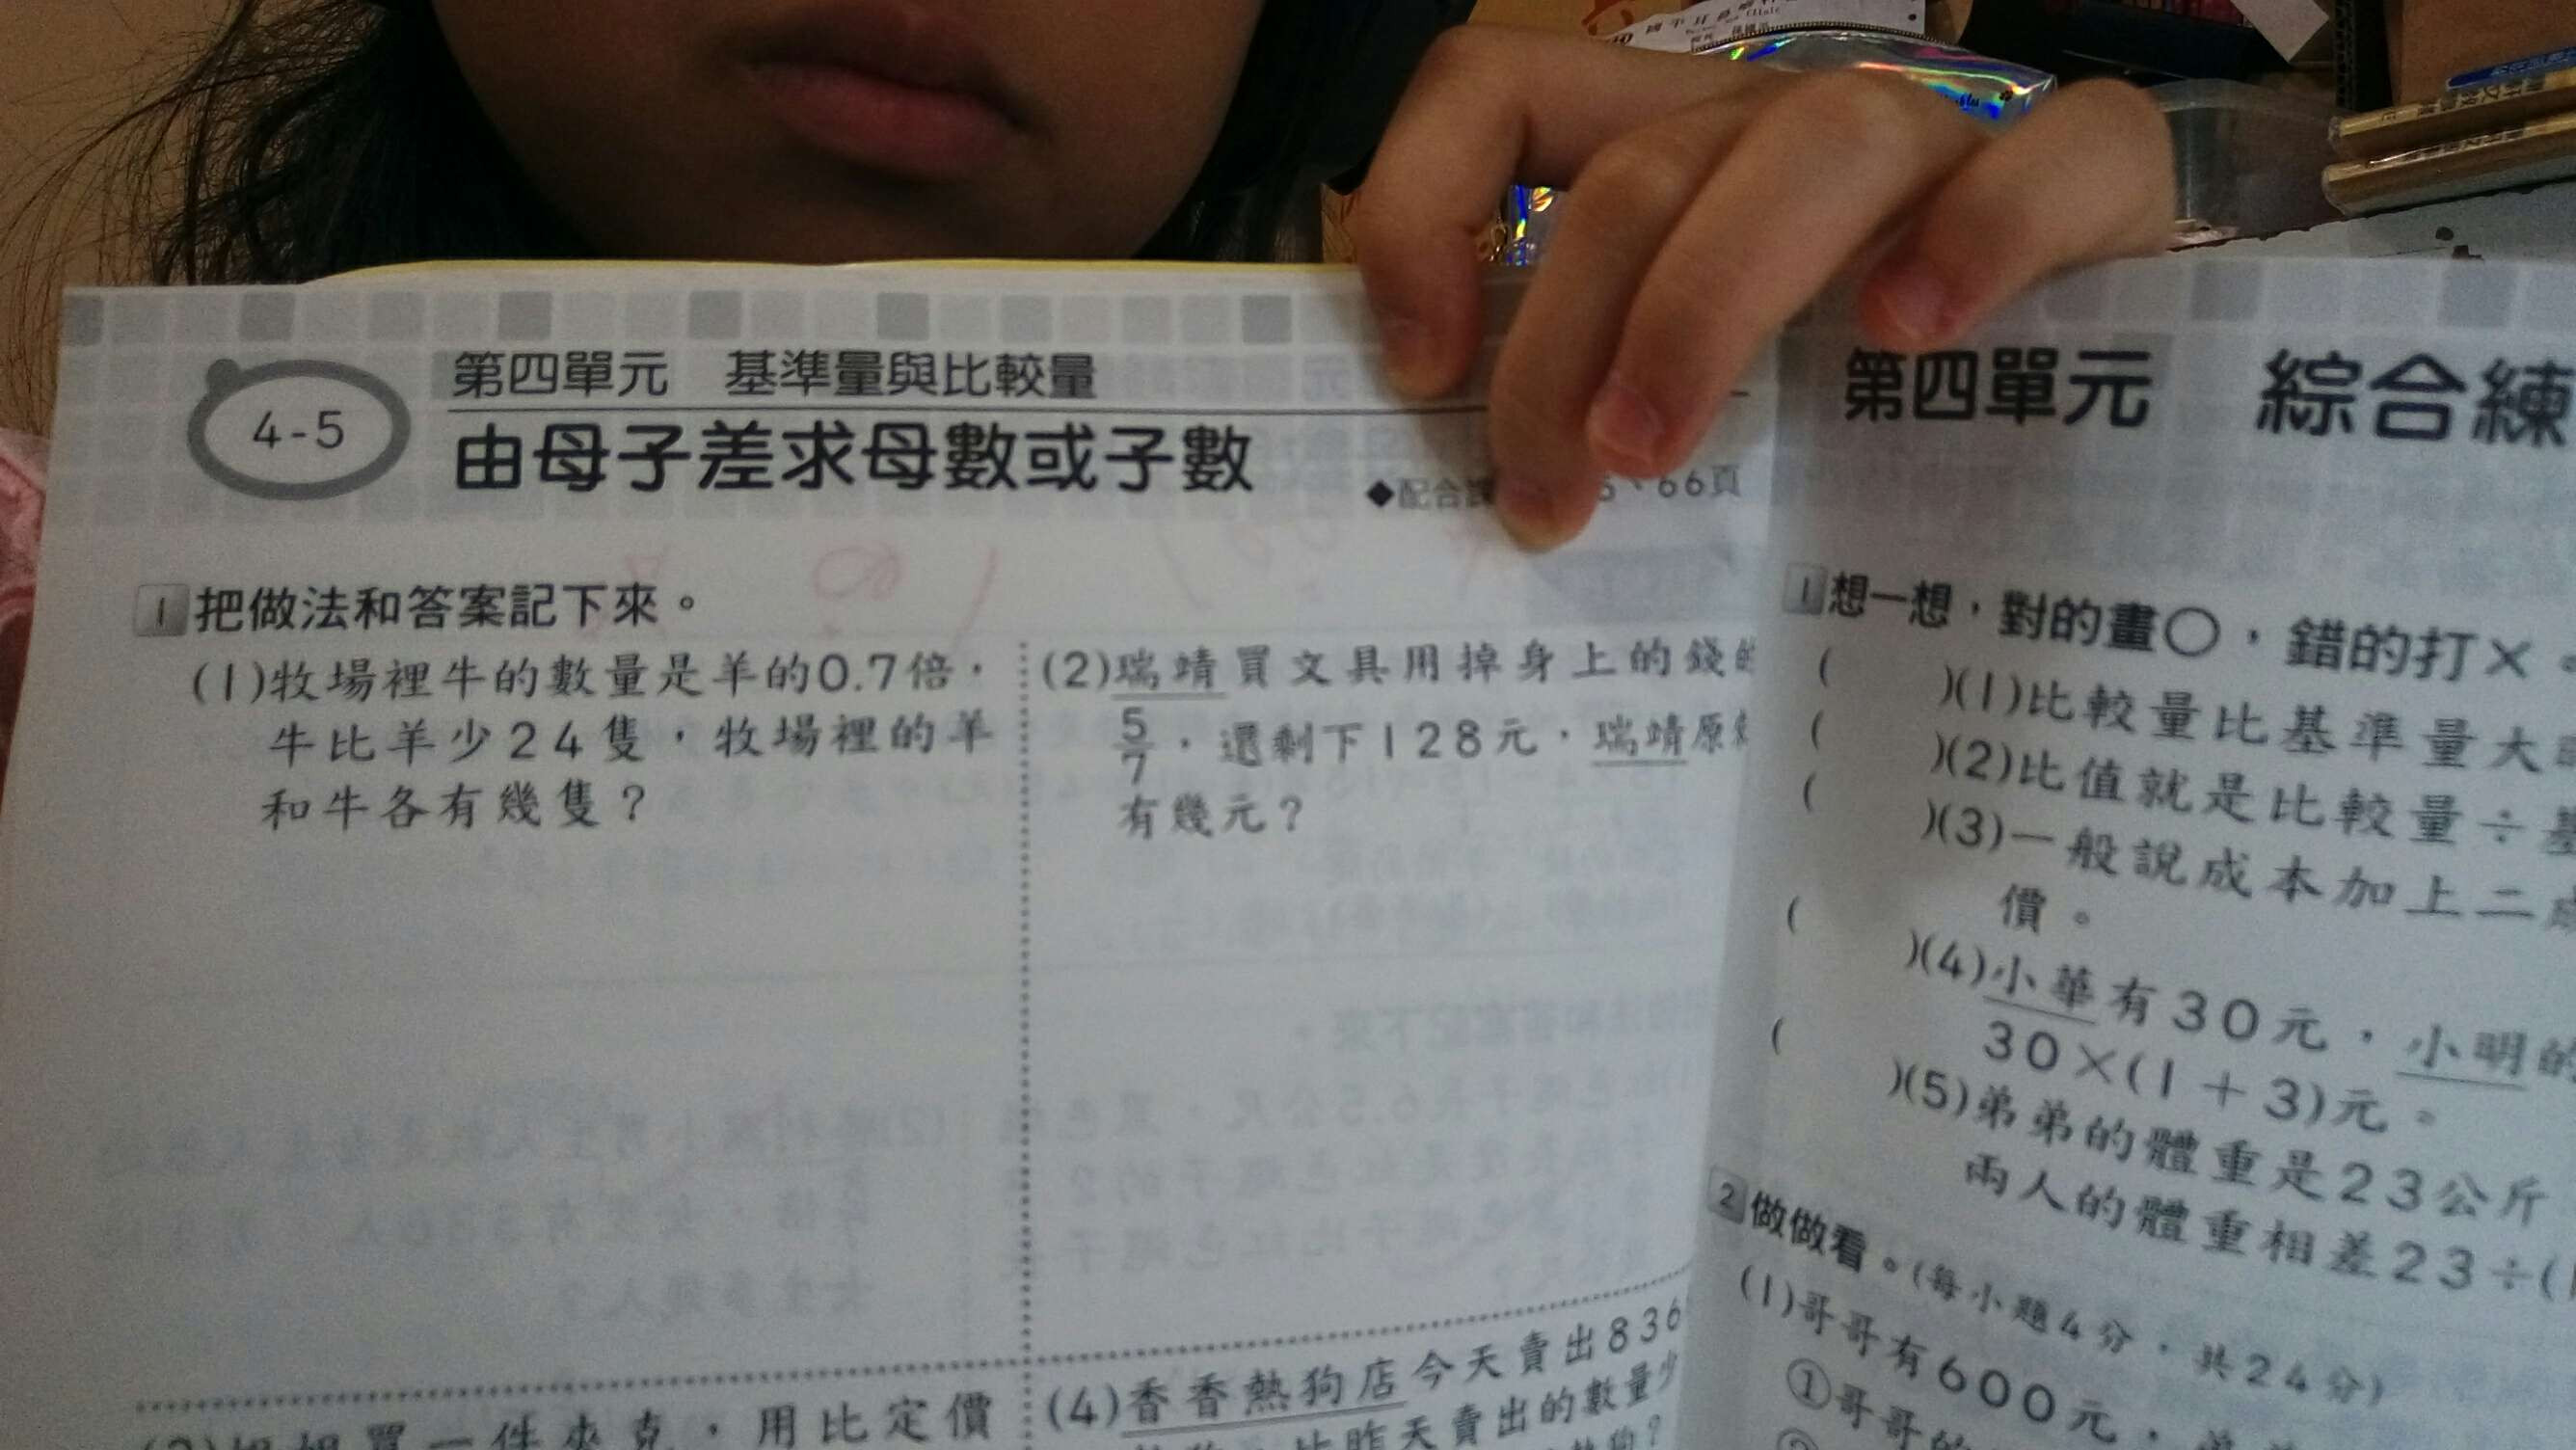 4-5
第四單元 基準量與比較量
由母子差求母數或子數
◆配合
66頁
1 把做法和答案記下來。
(1)牧場裡牛的數量是羊的0.7倍，
牛比羊少24隻，牧場裡的羊
和牛各有幾隻？
(2)瑞靖買文具用掉身上的錢的
5/7，還剩下128元，瑞靖原
有幾元？
用比定價
(4)香香熱狗店今天賣出836
比昨天賣出的數量少
第四單元 綜合練
1 想一想，對的畫○，錯的打×
( )(1)比較量比基準量大
( )(2)比值就是比較量÷
( )(3)一般說成本加上二
價。
( )(4)小華有30元，小明的
30×(1+3)元。
( )(5)弟弟的體重是23公斤
兩人的體重相差23÷(
2 做做看。(每小題4分，共24分)
(1)哥哥有600元，
①哥哥的